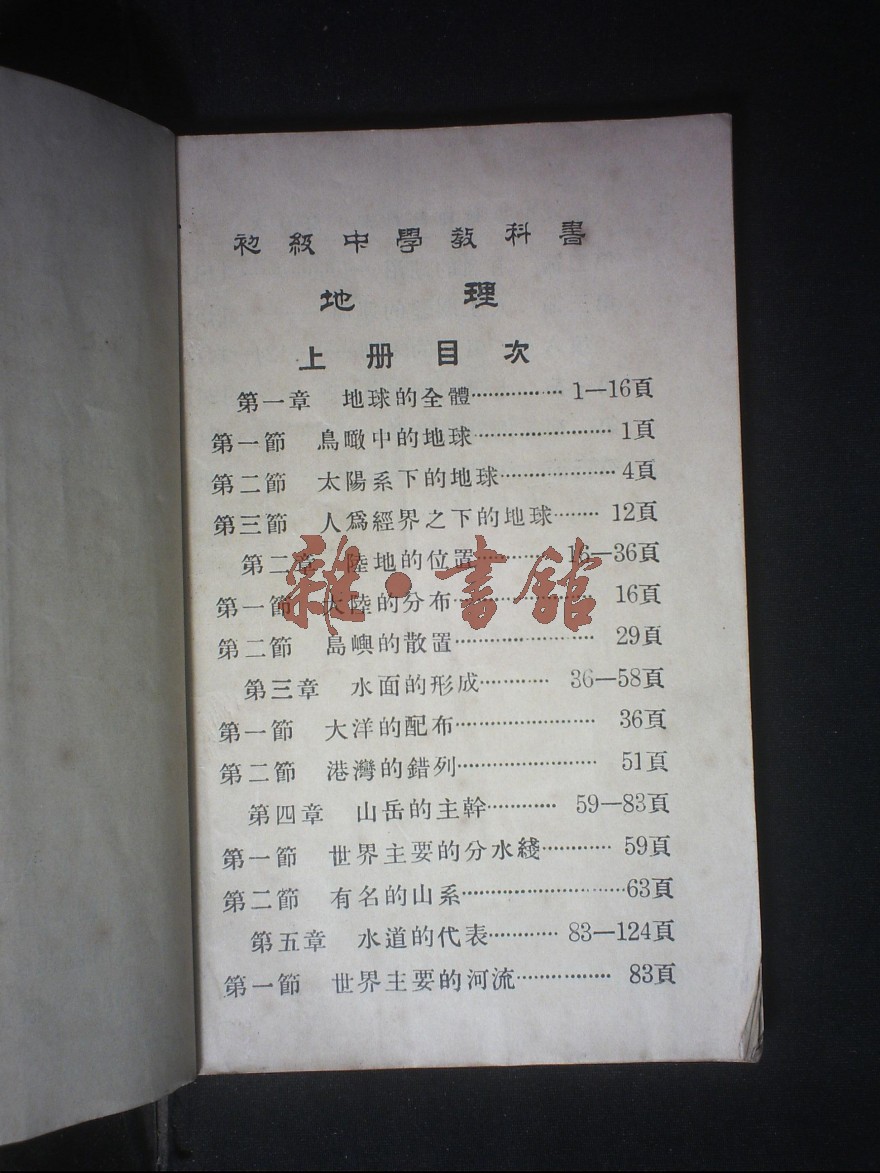 初級中學教科書
地理
上册目次
第一章 地球的全體⋯⋯⋯⋯⋯ 1—16頁
第一節 鳥瞰中的地球⋯⋯⋯⋯⋯⋯⋯ 1頁
第二節 太陽系下的地球⋯⋯⋯⋯⋯⋯ 4頁
第三節 人爲經界之下的地球⋯⋯⋯ 12頁
第二章 陸地的位置⋯⋯⋯⋯ 16—36頁
第一節 大陸的分布⋯⋯⋯⋯⋯⋯⋯ 16頁
第二節 島嶼的散置⋯⋯⋯⋯⋯⋯⋯ 29頁
第三章 水面的形成⋯⋯⋯⋯ 36—58頁
第一節 大洋的配布⋯⋯⋯⋯⋯⋯⋯ 36頁
第二節 港灣的錯列⋯⋯⋯⋯⋯⋯⋯ 51頁
第四章 山岳的主幹⋯⋯⋯⋯ 59—83頁
第一節 世界主要的分水綫⋯⋯⋯⋯ 59頁
第二節 有名的山系⋯⋯⋯⋯⋯⋯⋯⋯ 63頁
第五章 水道的代表⋯⋯⋯⋯ 83—124頁
第一節 世界主要的河流⋯⋯⋯⋯⋯ 83頁
雜·書館